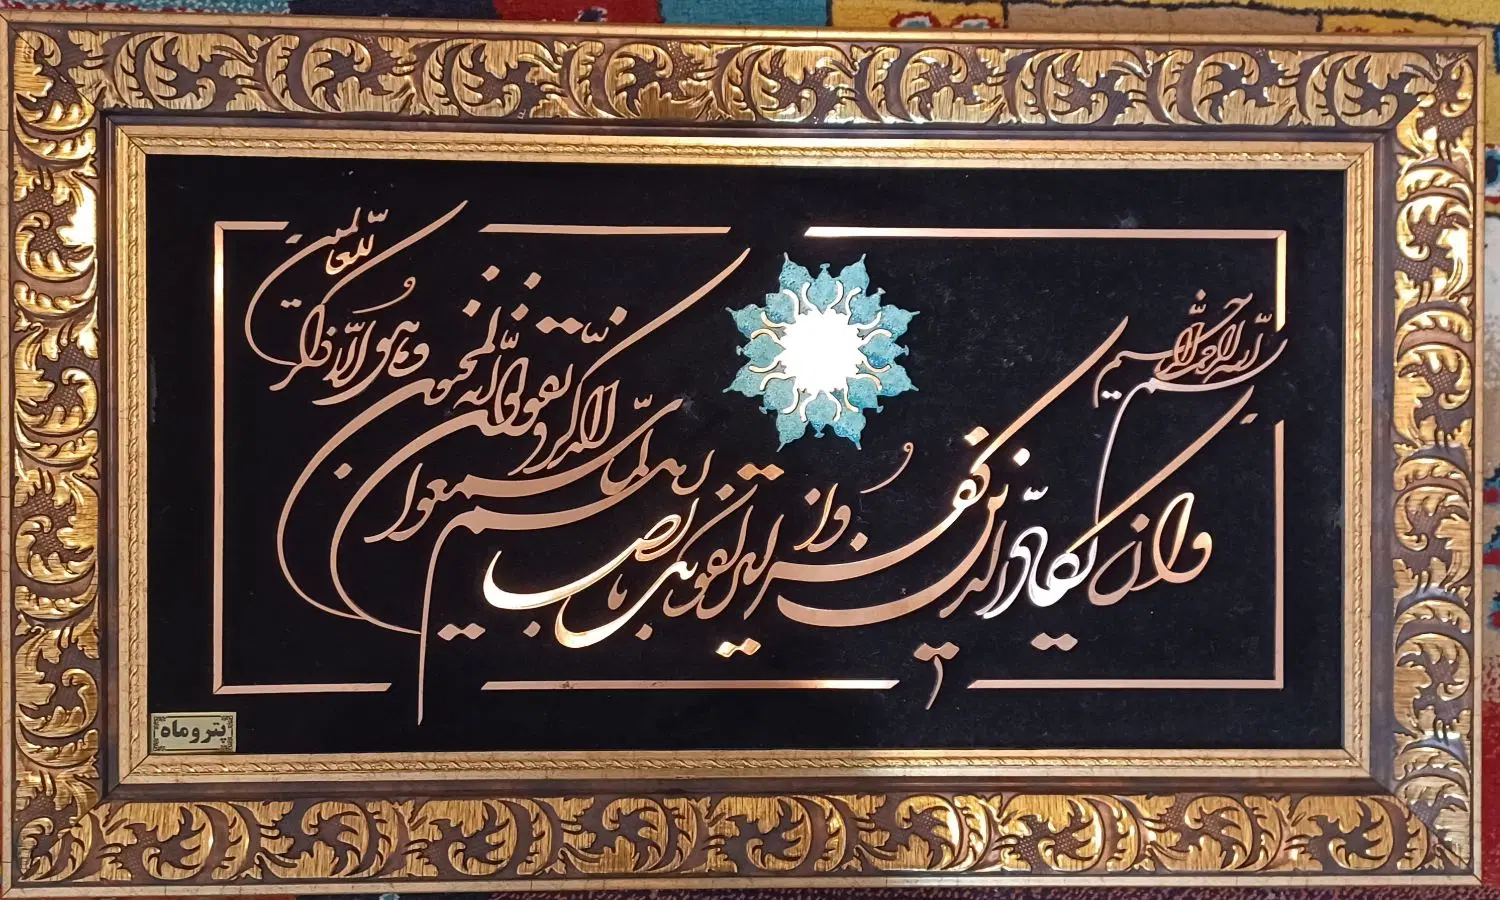 بسم الله الرحمن الرحیم
وان یکاد الذین کفروا لیزلقونک بابصارهم لما سمعوا الذکر و یقولون انه لمجنون و ما هو الا ذکر للعالمین
پتروماه